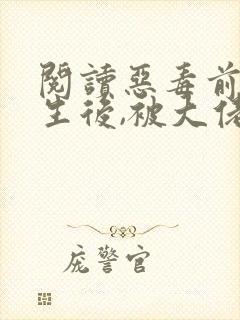 閱讀惡毒前
生後,被大佬
庞警官